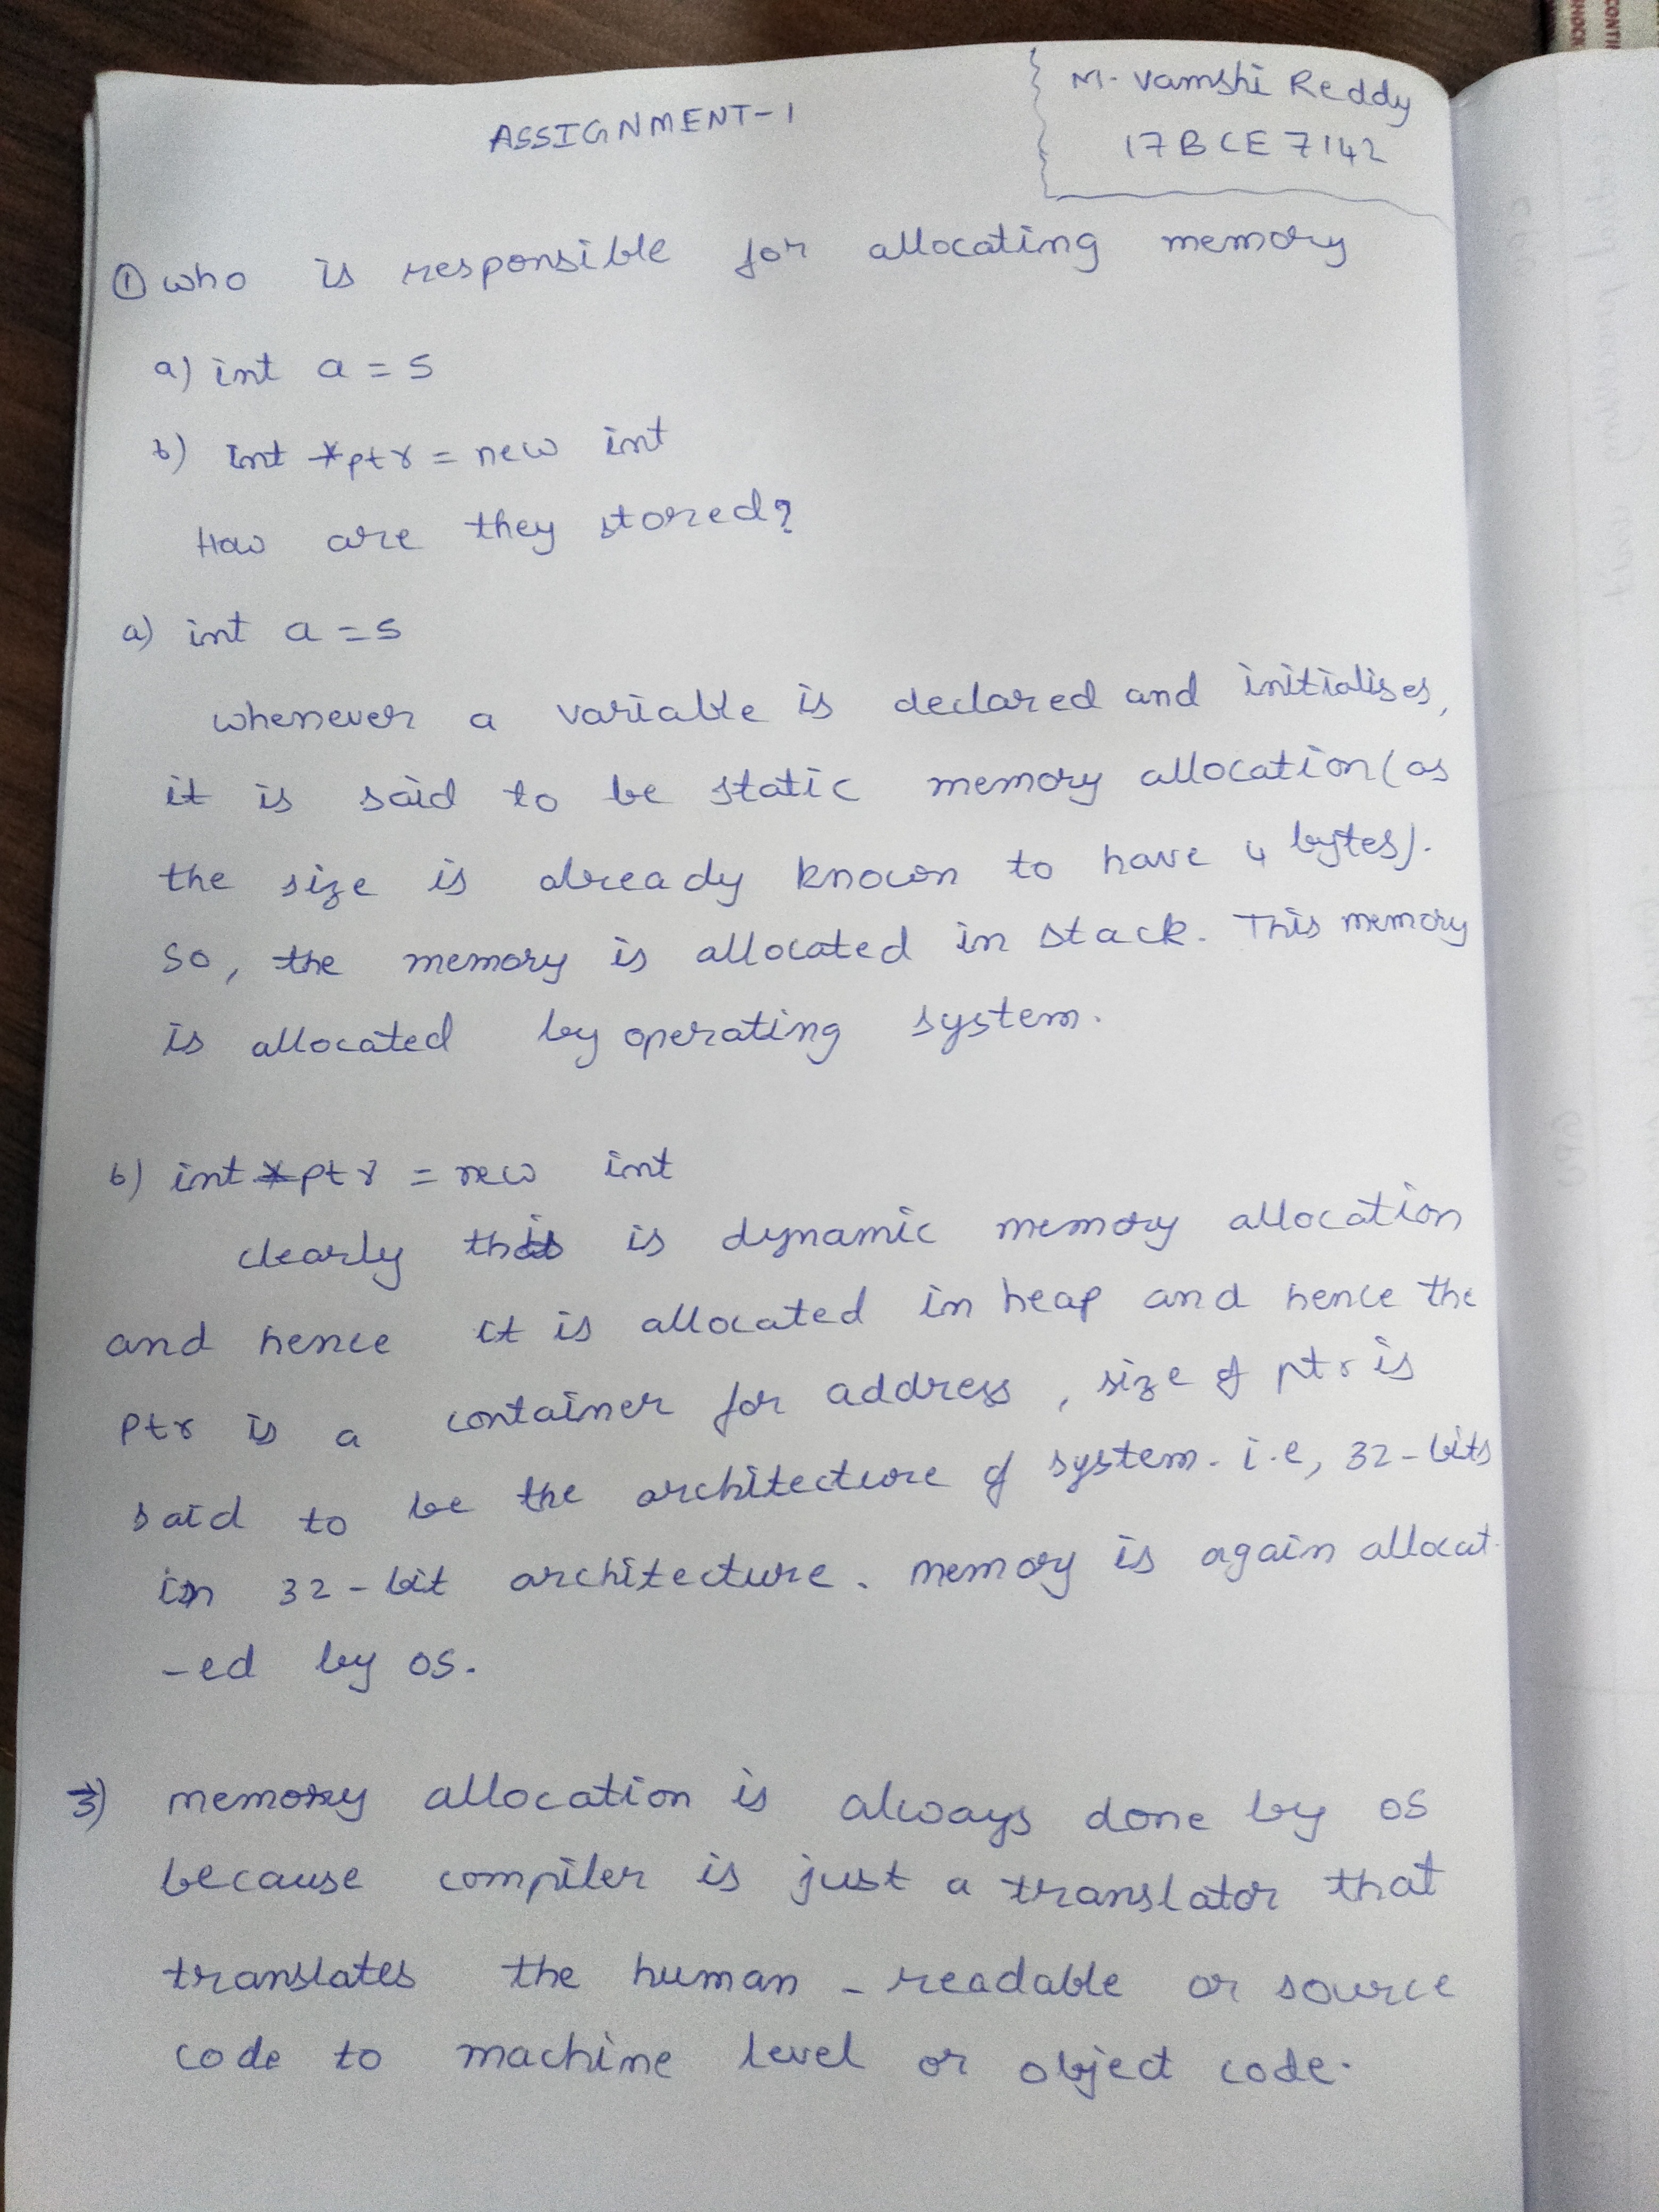 ASSIGNMENT-1
M. Vamshi Reddy
17BCE7142
① who is responsible for allocating memory
a) int a = 5
b) int *ptr = new int
How are they stored?
a) int a = 5
whenever a variable is declared and initialises,
it is said to be static memory allocation (as
the size is already known to have 4 bytes).
So, the memory is allocated in stack. This memory
is allocated by operating system.
b) int *ptr = new int
clearly this is dynamic memory allocation
and hence it is allocated in heap and hence the
ptr is a container for address, size of ptr is
said to be the architecture of system. i.e, 32-bits
in 32-bit architecture. memory is again allocat-
-ed by OS.
3) memory allocation is always done by OS
because compiler is just a translator that
translates the human-readable or source
code to machine level or object code.